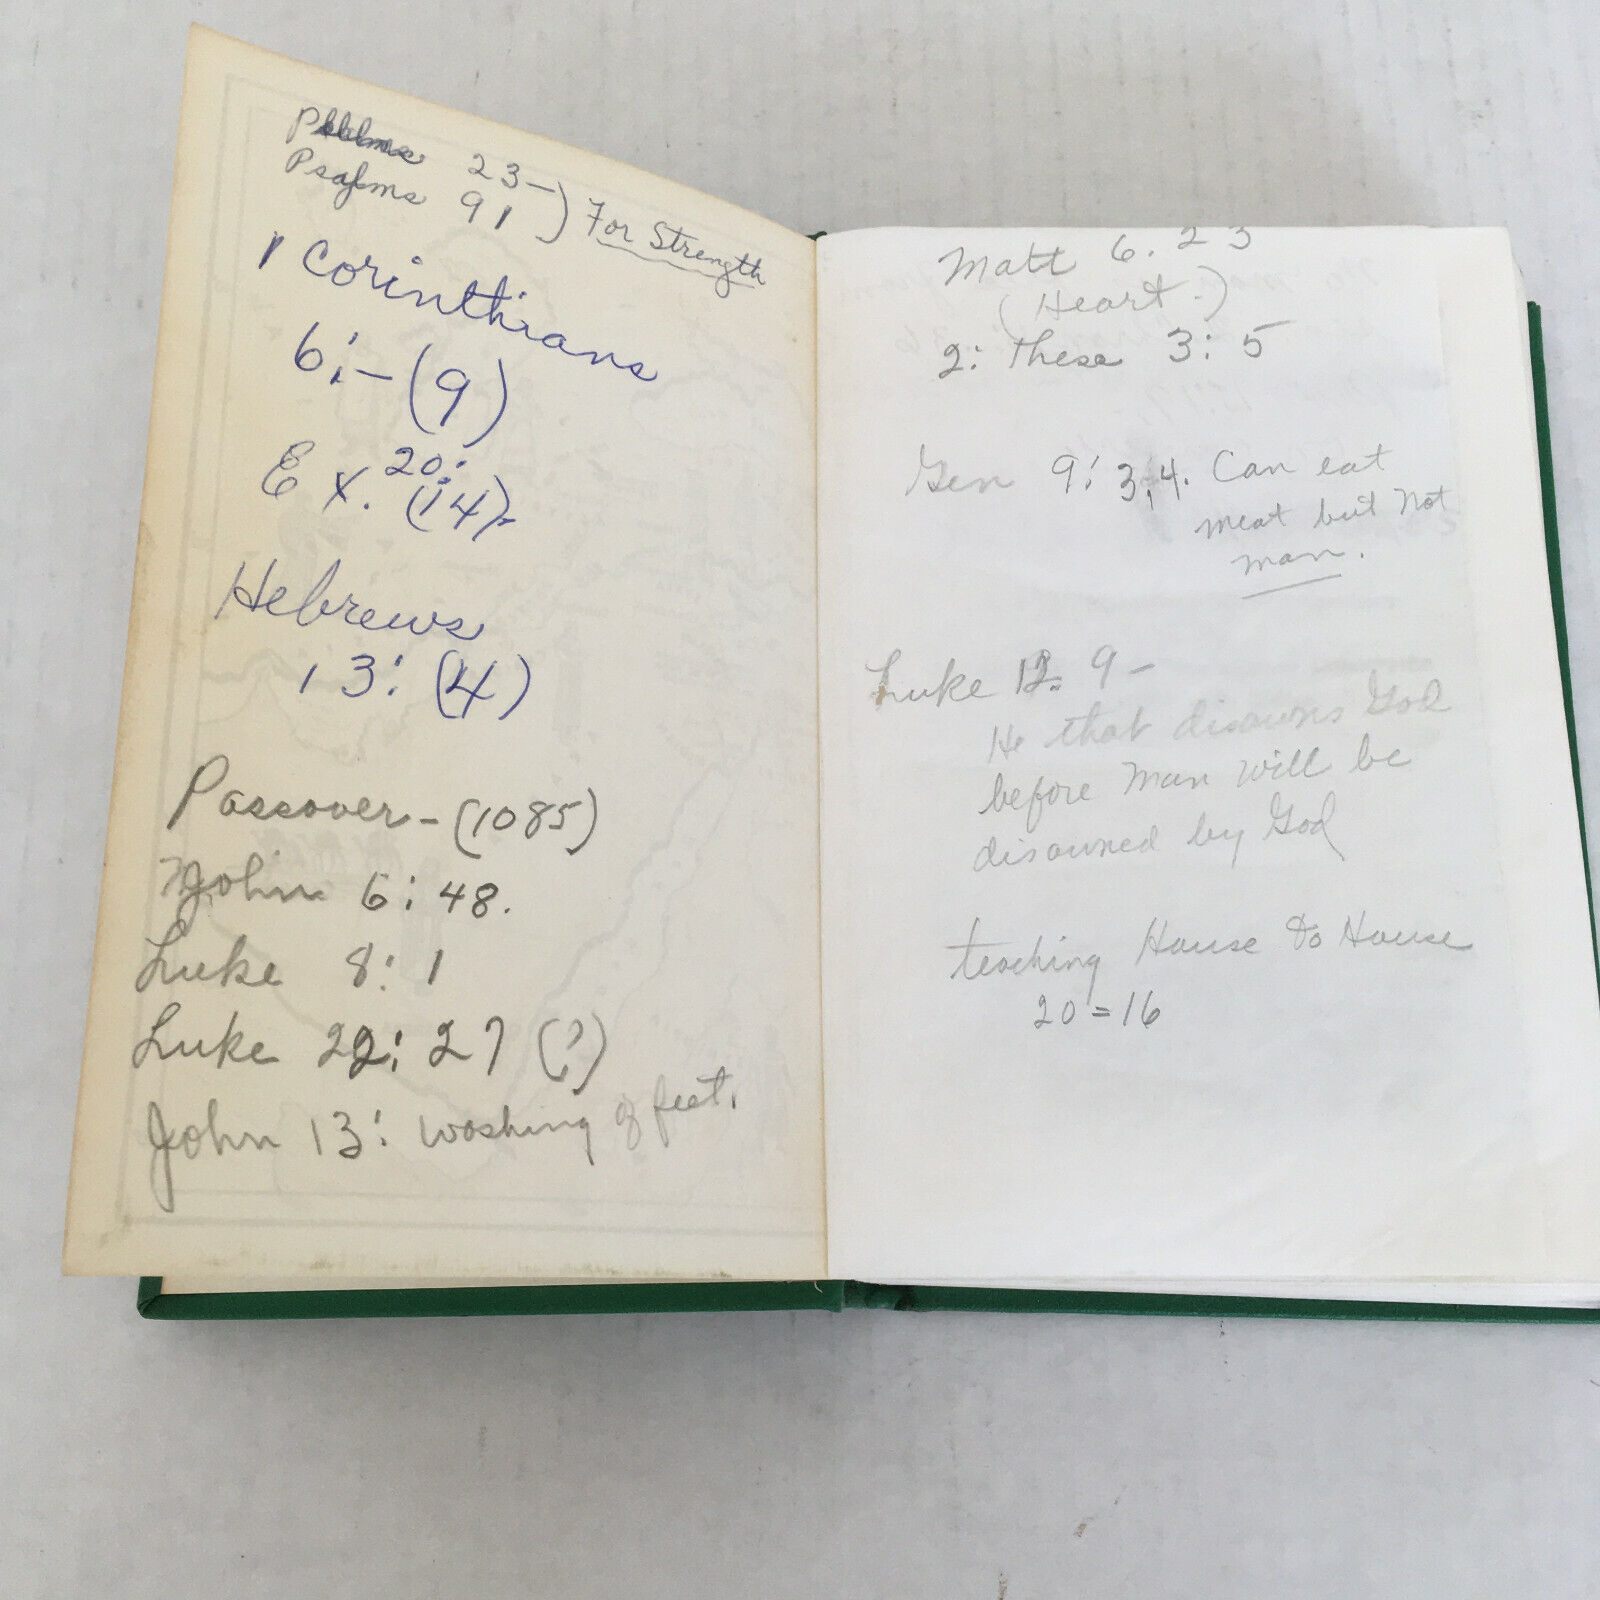 Psalms 23-
Psalms 91 ) For Strength
1 Corinthians
6:- (9)
Ex. 20:
(14)-
Hebrews
13: (4)
Passover - (1085)
John 6:48.
Luke 8:1
Luke 22:27 (?)
John 13: washing of feet.
Matt 6.23
(Heart.)
2: These 3:5
Gen 9:3,4. Can eat
meat but not
man.
Luke 12: 9-
He that disowns God
before Man will be
disowned by God
teaching House to House
20=16